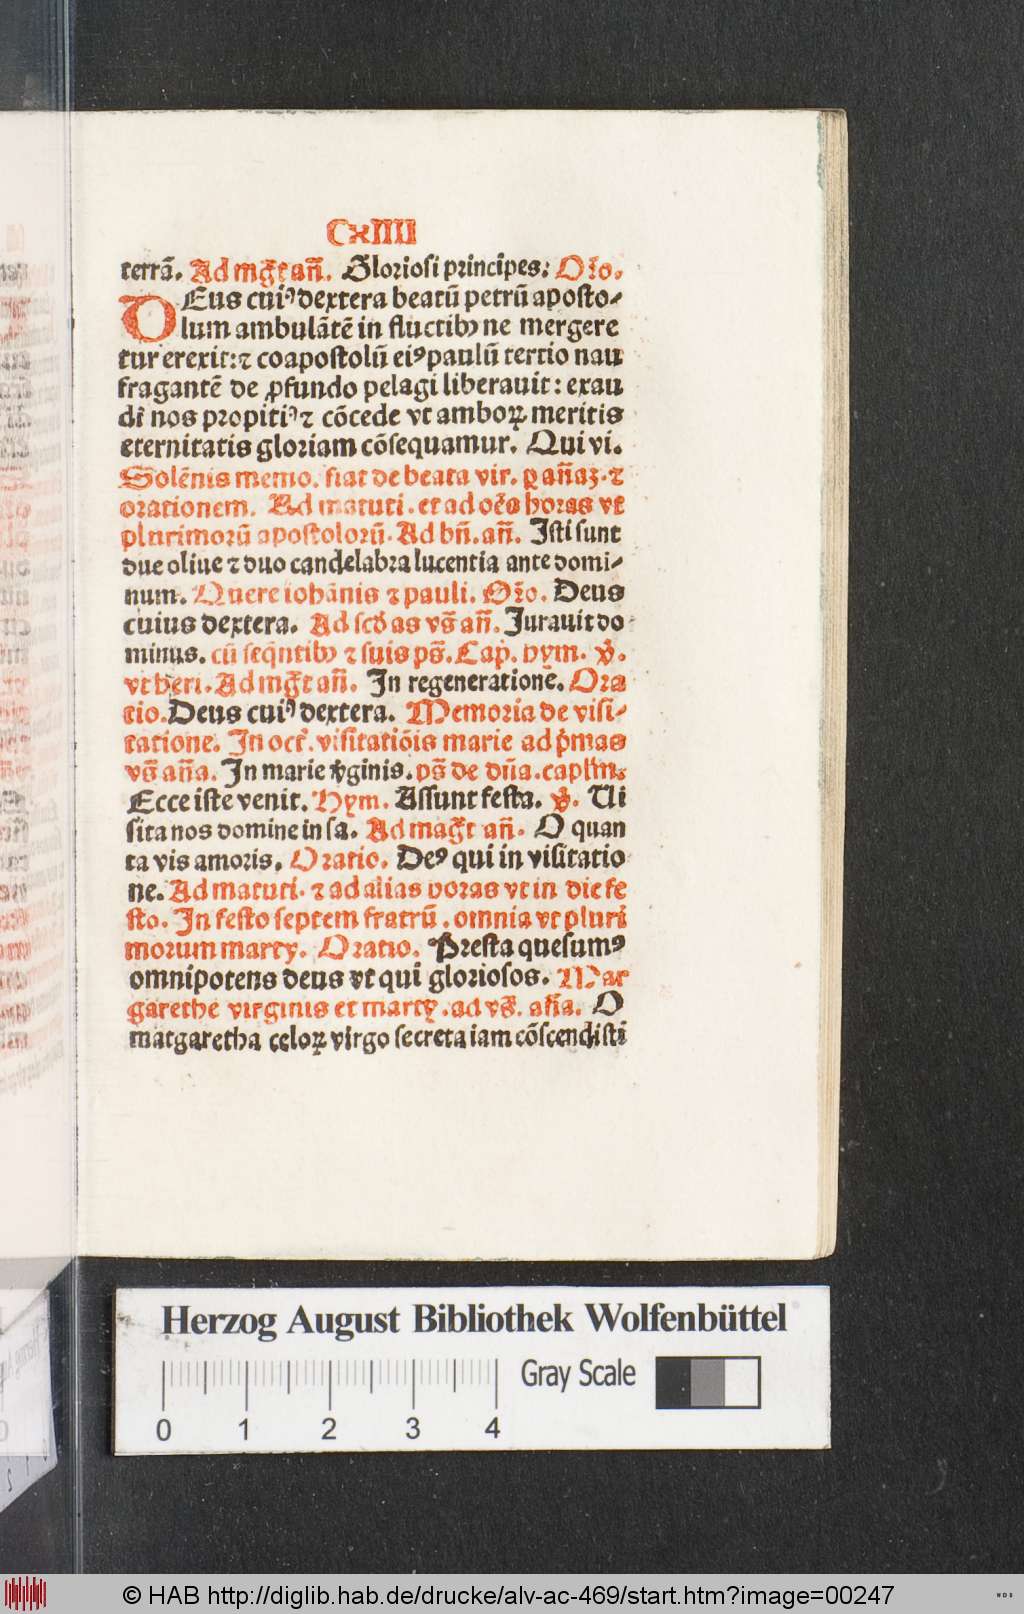 CxIIII
terrā. Ad mgᷓt añ. Gloriosi principes: Oro.
DEus cuiꝰ dextera beatū petrū aposto⸗
lum ambulātē in fluctibꝫ ne mergere
tur erexit: ⁊ coapostolū eiꝰ paulū tertio nau
fragantē de ꝓfundo pelagi liberauit: exau
di nos propitiꝰ ⁊ cōcede vt amboꝝ meritis
eternitatis gloriam cōsequamur. Qui vi.
Solēnis memo. fiat de beata vir. ꝑ añaꝫ. ⁊
orationem. Ad matuti. et ad oēs horas vt
plurimorū apostolorū. Ad bñ. añ. Isti sunt
due oliue ⁊ duo candelabra lucentia ante domi⸗
num. Quere iohānis ⁊ pauli. Oro. Deus
cuius dextera. Ad scdas vs̄ añ. Jurauit do
minus. cū seqntibꝫ ⁊ suis ps̄. Cap. hym. ꝟ.
vt heri. Ad mgᷓt añ. In regeneratione. Ora
tio. Deus cuiꝰ dextera. Memoria de visi⸗
tatione. In oct. visitatiōis marie ad pmas
vs̄ aña. In marie vginis. ps̄ de dña. caplm.
Ecce iste venit. Hym. Assunt festa. ꝟ. Ui
sita nos domine in sa. Ad magt añ. O quan
ta vis amoris. Oratio. Deꝰ qui in visitatio
ne. Ad matuti. ⁊ ad alias horas vt in die fe
sto. In festo septem fratrū. omnia vt pluri
morum marty. Oratio. Presta quesumꝰ
omnipotens deus vt qui gloriosos. Mar
garethe virginis et marty. ad vs̄. aña. O
matgaretha celoꝝ virgo secreta iam cōscendisti
Herzog August Bibliothek Wolfenbüttel
Gray Scale
0 1 2 3 4
© HAB http://diglib.hab.de/drucke/alv-ac-469/start.htm?image=00247